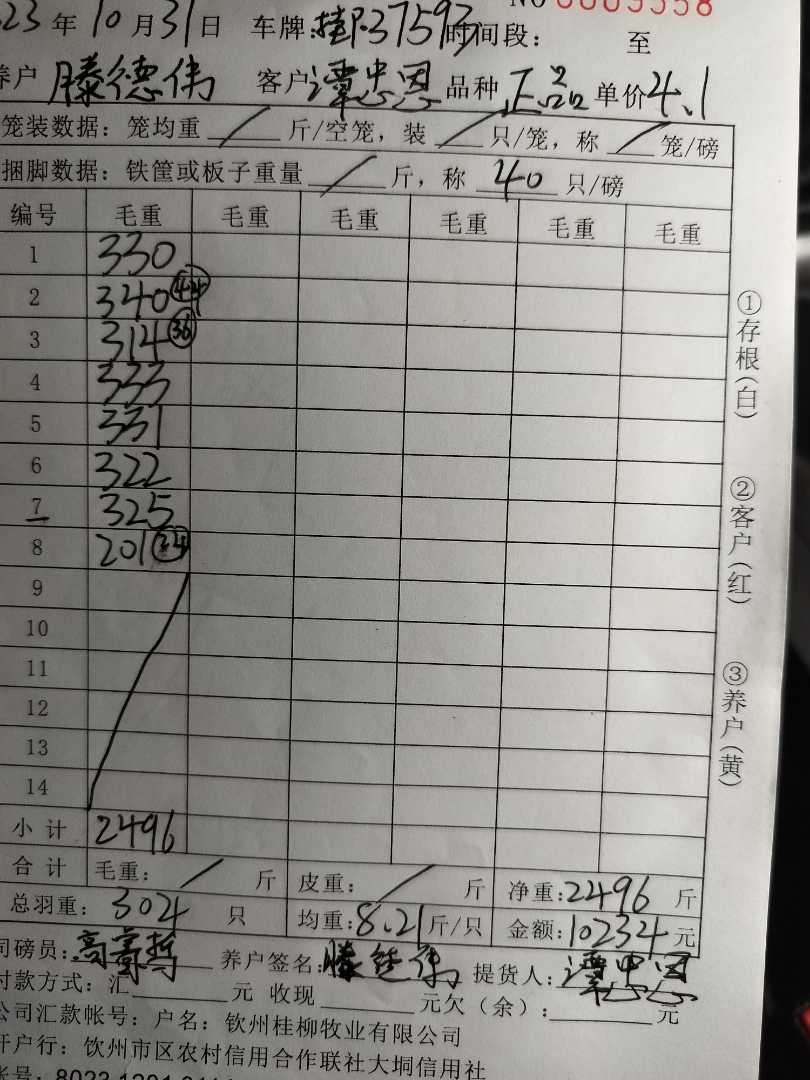 23 年 10 月 31 日 车牌: 桂P37593 时间段: 至
养户 滕德伟 客户 谭忠恩 品种 正品 单价 4.1
笼装数据: 笼均重 / 斤/空笼, 装 / 只/笼, 称 / 笼/磅
捆脚数据: 铁筐或板子重量 / 斤, 称 40 只/磅
编号 毛重 毛重 毛重 毛重 毛重 毛重
1 330
2 340 44
3 314 36
4 333
5 331
6 322
7 325
8 201 24
9
10
11
12
13
14
小计 2496
合计 毛重: / 斤 皮重: / 斤 净重: 2496 斤
总羽重: 304 只 均重: 8.21 斤/只 金额: 10234 元
司磅员: 养户签名: 滕德伟 提货人: 谭忠恩
付款方式: 汇 元 收现 元欠(余): 元
公司汇款帐号: 户名: 钦州桂柳牧业有限公司
开户行: 钦州市区农村信用合作联社大垌信用社
①存根(白)
②客户(红)
③养户(黄)